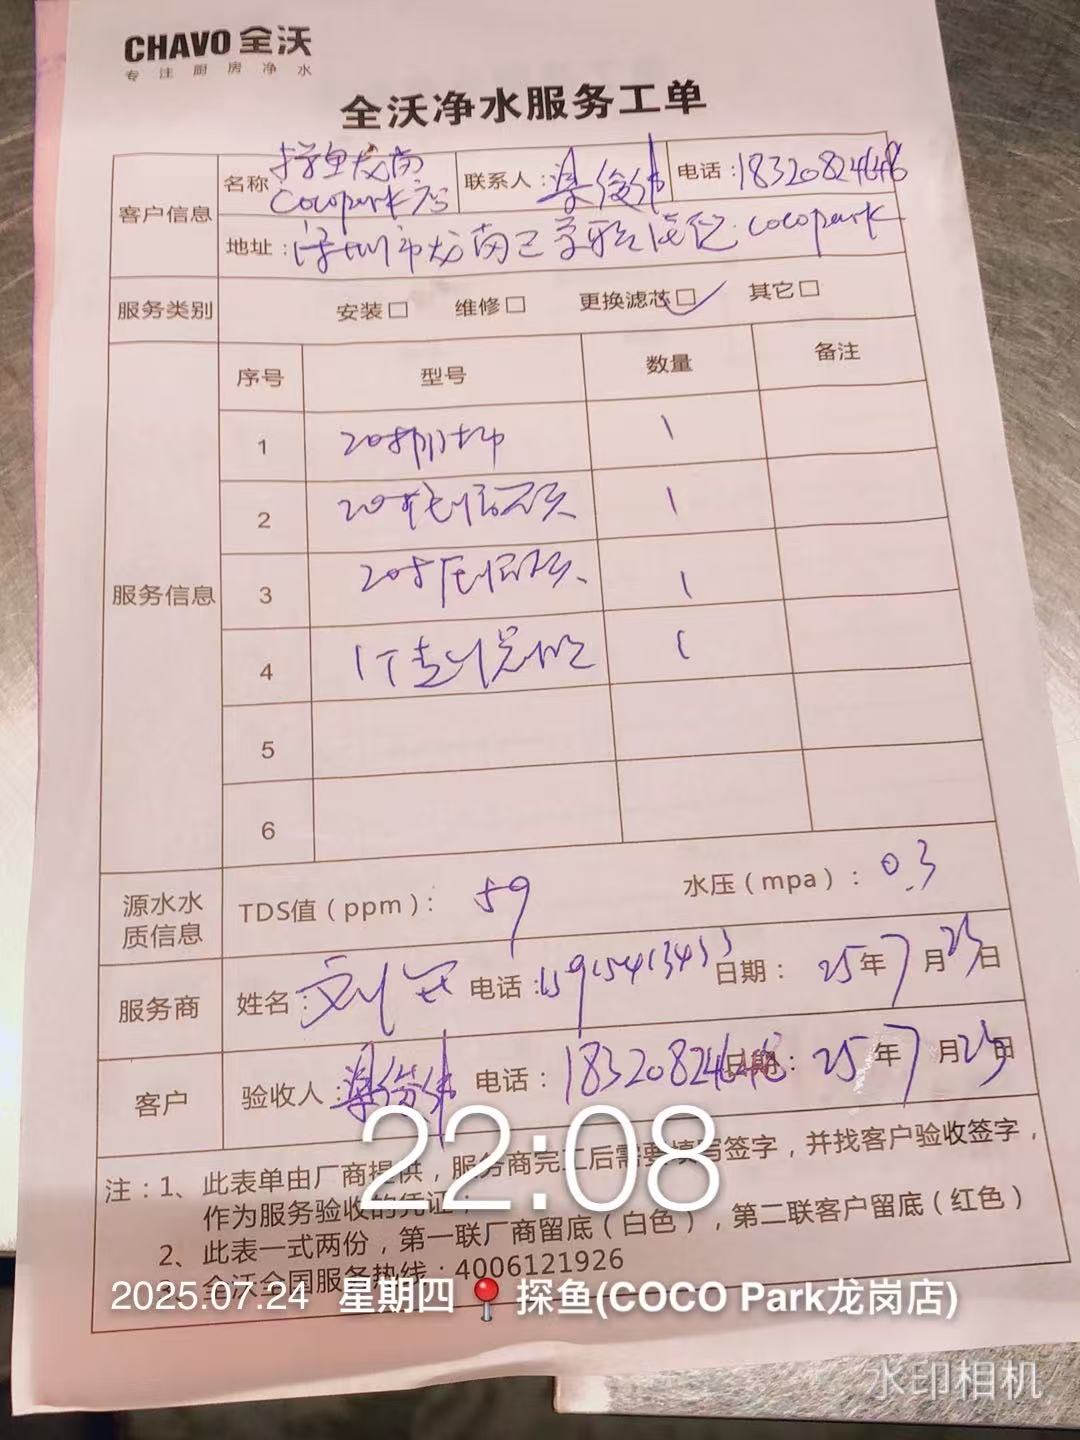 CHAVO 全沃
专注厨房净水
全沃净水服务工单
客户信息
名称: 探鱼龙岗
Cocopark店
联系人: 梁俊伟
电话: 18320824648
地址: 深圳市龙岗区 cocopark
服务类别
安装□ 维修□ 更换滤芯□✓ 其它□
服务信息
序号 型号 数量 备注
1 20寸 1
2 20寸 1
3 20寸 1
4 1
5
6
源水水质信息
TDS值（ppm）: 59
水压（mpa）: 0.3
服务商
姓名: 刘
电话: 15915413433
日期: 25年7月23日
客户
验收人: 梁俊伟
电话: 18320824648
日期: 25年7月23日
注：1、此表单由厂商提供，服务商完工后需要填写签字，并找客户验收签字，
作为服务验收的凭证；
2、此表一式两份，第一联厂商留底（白色），第二联客户留底（红色）
3、全沃全国服务热线：4006121926
22:08
2025.07.24 星期四 探鱼(COCO Park龙岗店)
水印相机